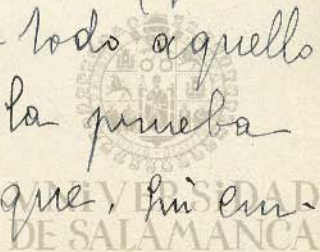 todo aquello
la prueba
que, sin em-
UNIVERSIDAD
DE SALAMANCA